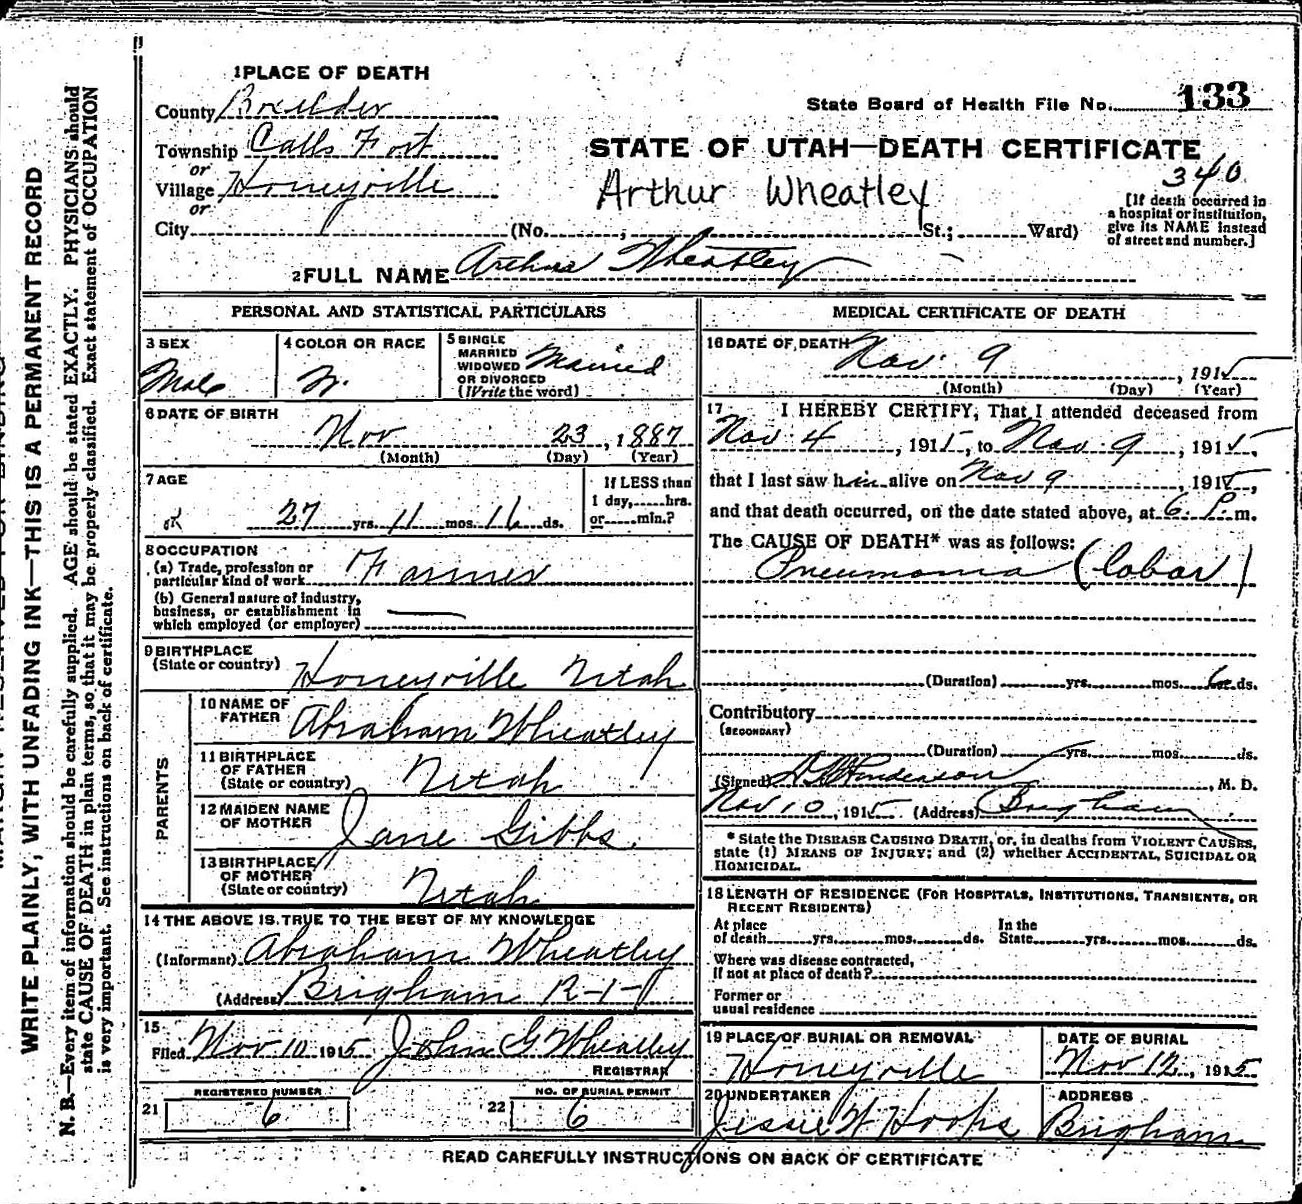 WRITE PLAINLY, WITH UNFADING INK—THIS IS A PERMANENT RECORD
N. B.—Every item of information should be carefully supplied. AGE should be stated EXACTLY. PHYSICIANS should
state CAUSE OF DEATH in plain terms, so that it may be properly classified. Exact statement of OCCUPATION
is very important. See instructions on back of certificate.
1 PLACE OF DEATH
County Boxelder
State Board of Health File No. 133
Township Calls Fort
or
STATE OF UTAH—DEATH CERTIFICATE
340
Village Honeyville
or
Arthur Wheatley
City (No. , St.; Ward)
[If death occurred in
a hospital or institution,
give its NAME instead
of street and number.]
2 FULL NAME Arthur Wheatley
PERSONAL AND STATISTICAL PARTICULARS
3 SEX
Male
4 COLOR OR RACE
W.
5 SINGLE
MARRIED
WIDOWED
OR DIVORCED
(Write the word)
Married
6 DATE OF BIRTH
Nov 23, 1887
(Month) (Day) (Year)
7 AGE
27 yrs. 11 mos. 16 ds.
If LESS than
1 day, hrs.
or min.?
8 OCCUPATION
(a) Trade, profession or
particular kind of work Farmer
(b) General nature of industry,
business, or establishment in
which employed (or employer)
9 BIRTHPLACE
(State or country) Honeyville Utah
PARENTS
10 NAME OF
FATHER Abraham Wheatley
11 BIRTHPLACE
OF FATHER
(State or country) Utah
12 MAIDEN NAME
OF MOTHER Jane Gibbs.
13 BIRTHPLACE
OF MOTHER
(State or country) Utah
14 THE ABOVE IS TRUE TO THE BEST OF MY KNOWLEDGE
(Informant) Abraham Wheatley
(Address) Brigham R-1-
15
Filed Nov 10 1915 John G Wheatley
REGISTRAR
REGISTERED NUMBER
21 6
NO. OF BURIAL PERMIT
22 6
MEDICAL CERTIFICATE OF DEATH
16 DATE OF DEATH
Nov. 9, 1915
(Month) (Day) (Year)
17 I HEREBY CERTIFY, That I attended deceased from
Nov. 4, 1915, to Nov. 9, 1915,
that I last saw him alive on Nov 9, 1915,
and that death occurred, on the date stated above, at 6. P. m.
The CAUSE OF DEATH* was as follows:
Pneumonia (lobar)
(Duration) yrs. mos. 6 ds.
Contributory
(SECONDARY)
(Duration) yrs. mos. ds.
(Signed) Henderson, M. D.
Nov 10, 1915 (Address) Brigham
* State the DISEASE CAUSING DEATH, or, in deaths from VIOLENT CAUSES,
state (1) MEANS OF INJURY; and (2) whether ACCIDENTAL, SUICIDAL OR
HOMICIDAL.
18 LENGTH OF RESIDENCE (FOR HOSPITALS, INSTITUTIONS, TRANSIENTS, OR
RECENT RESIDENTS)
At place
of death yrs. mos. ds.
In the
State yrs. mos. ds.
Where was disease contracted,
If not at place of death?
Former or
usual residence
19 PLACE OF BURIAL OR REMOVAL
Honeyville
DATE OF BURIAL
Nov 12, 1915
20 UNDERTAKER
Jessie W Hoops
ADDRESS
Brigham
READ CAREFULLY INSTRUCTIONS ON BACK OF CERTIFICATE